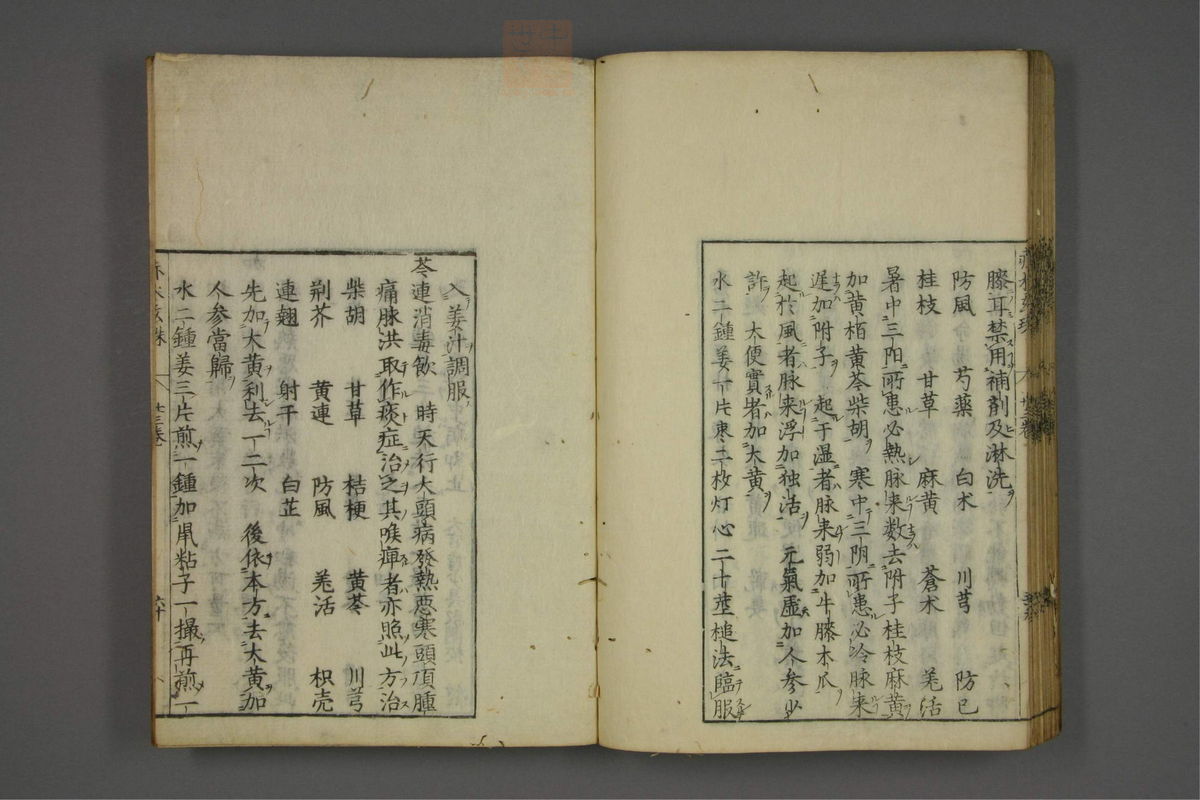 滕耳禁用補劑及淋洗
防風 芍薬 白朮 川芎 防已
桂枝 甘草 麻黄 蒼朮 羌活
暑中三阳所患必熱脉来数去附子桂枝麻黄
加黄栢黄芩柴胡 寒中三阴所患必冷脉来
遅加附子 起于湿者脉来弱加牛膝木瓜
起於風者脉来浮加独活 元氣虛加人参少
許 大便實者加大黄
水二鍾姜一片棗二枚灯心二十莖槌法臨服
入姜汁調服
芩連消毒飲 時天行大頭病發熱惡寒頭項腫
痛脉洪取作痰症治之其喉痺者亦照此方治
柴胡 甘草 桔梗 黄芩 川芎
荆芥 黄連 防風 羌活 枳壳
連翹 射干 白芷
先加大黄利去一二次 後依本方去大黄加
人参當歸
水二鍾姜三片煎一鍾加鼡粘子一撮再煎一
赤水玄珠 廿三卷 六十